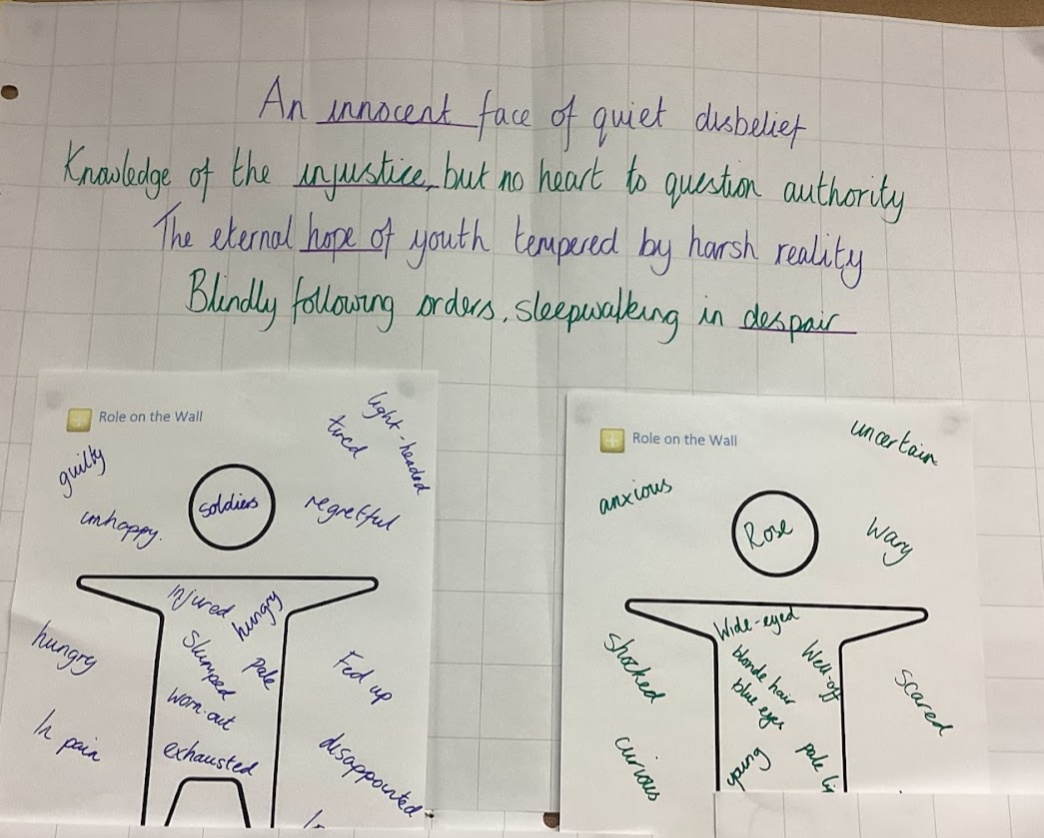 An innocent face of quiet disbelief
Knowledge of the injustice, but no heart to question authority
The eternal hope of youth tempered by harsh reality
Blindly following orders, sleepwalking in despair
Role on the Wall
light-headed
tired
guilty
soldiers
regretful
unhappy.
Injured
hungry
Slumped
pale
worn-out
exhausted
hungry
In pain
Fed up
disappointed
Role on the Wall
uncertain
anxious
Rose
Wary
Wide-eyed
Well-off
blonde hair
blue eyes
young
pale
Shocked
Scared
curious